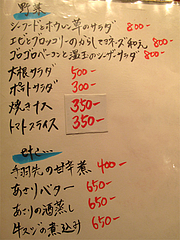 野菜
シーフードとホウレン草のサラダ 800-
エビとブロッコリーのからしマヨネーズ和え 800-
ゴロゴロベーコンと温玉のシーザーサラダ 800-
大根サラダ 500-
ポテトサラダ 300-
焼きナス 350-
トマトスライス 350-
etc...
手羽先の甘辛煮 400-
あさりバター 650-
あさりの酒蒸し 650-
牛スジの煮込み 650-